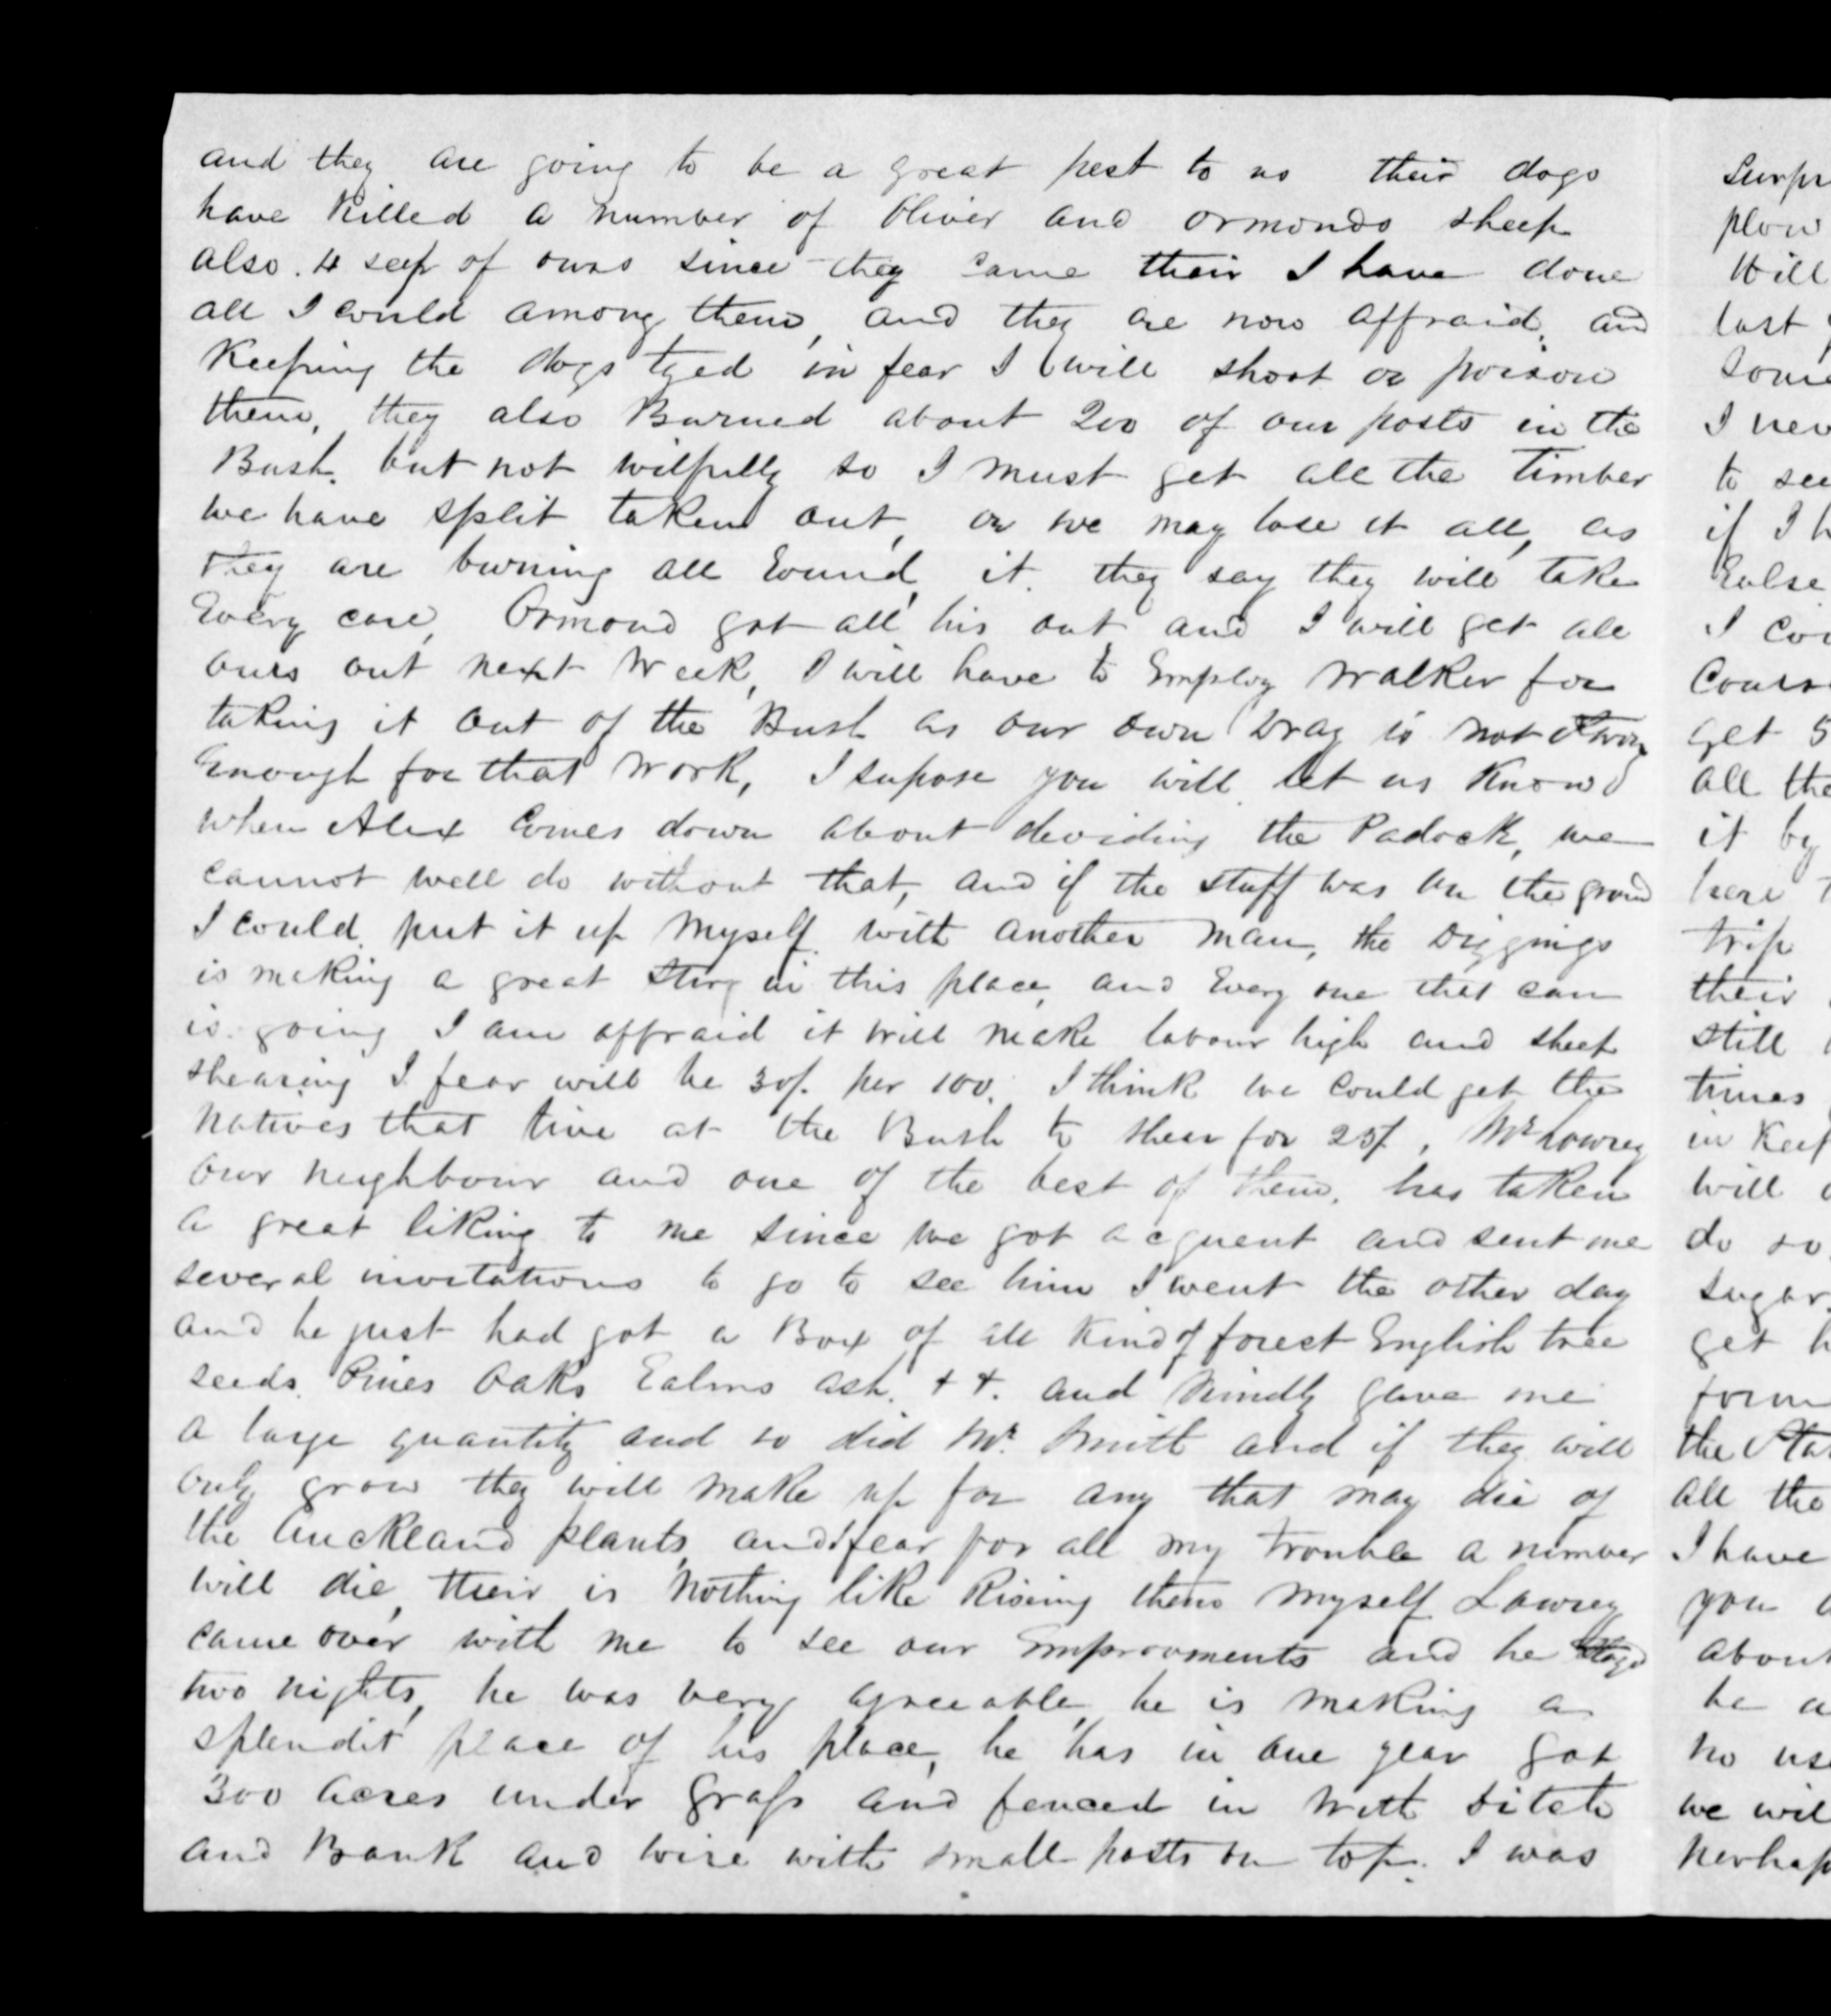 and they are going to be a great pest to us their dogs
have killed a number of Oliver and Ormonds sheep
also. 4 seep of ours since they came their I have done
all I could among them, and they are now affraid, and
Keeping the dogs tyed in fear I will shoot or poison
them, they also Burned about 200 of our posts in the
Bush. but not wilfully so I must get all the Timber
we have split taken out, or we may lose it all, as
they are burning all round it. they say they will take
Every care, Ormond got all his out and I will get all
ours out next Week, I will have to Employ Walker for
taking it out of the Bush as our own Dray is not strong
Enough for that Work, I supose you will let us Know
when Alex Comes down about deviding the Padock, we
cannot well do without that, and if the stuff was on the ground
I could put it up Myself with another Man, the Diggings
is making a great in this place, and Every one that can
is going I am affraid it will make labour high and sheep
shearing I fear will be 30/. per 100. I think we could get the
Natives that live at the Bush to shear for 25/. Mr Lowrey
our neighbour and one of the best of them, has taken
a great liking to me since we got acquent and sent me
several invitations to go to see him I went the other day
and he just had got a Box of all Kind of forest English tree
seeds. Pines Oaks Ealms ash. + +. and Kindly gave me
a large quantity and so did Mr. Smith and if they will
only grow they will make up for any that may die of
the Auckland plants, and I fear for all my trouble a number
will die, their is Nothing like Rising them Myself Lowrey
came over with me to see our Improvments and he
two nights, he was very agreeable, he is making a
splendit place of his place, he has in one year got
300 acres under Grass and fenced in With Ditch
and Bank and wire with small posts on top. I was
plow
Will
last
I
to see
if I
I
get 5
all the
it by
here
trip
their
still
times
in
will
do so
sugar
get
the
all the
I have
you
about
be
no
we